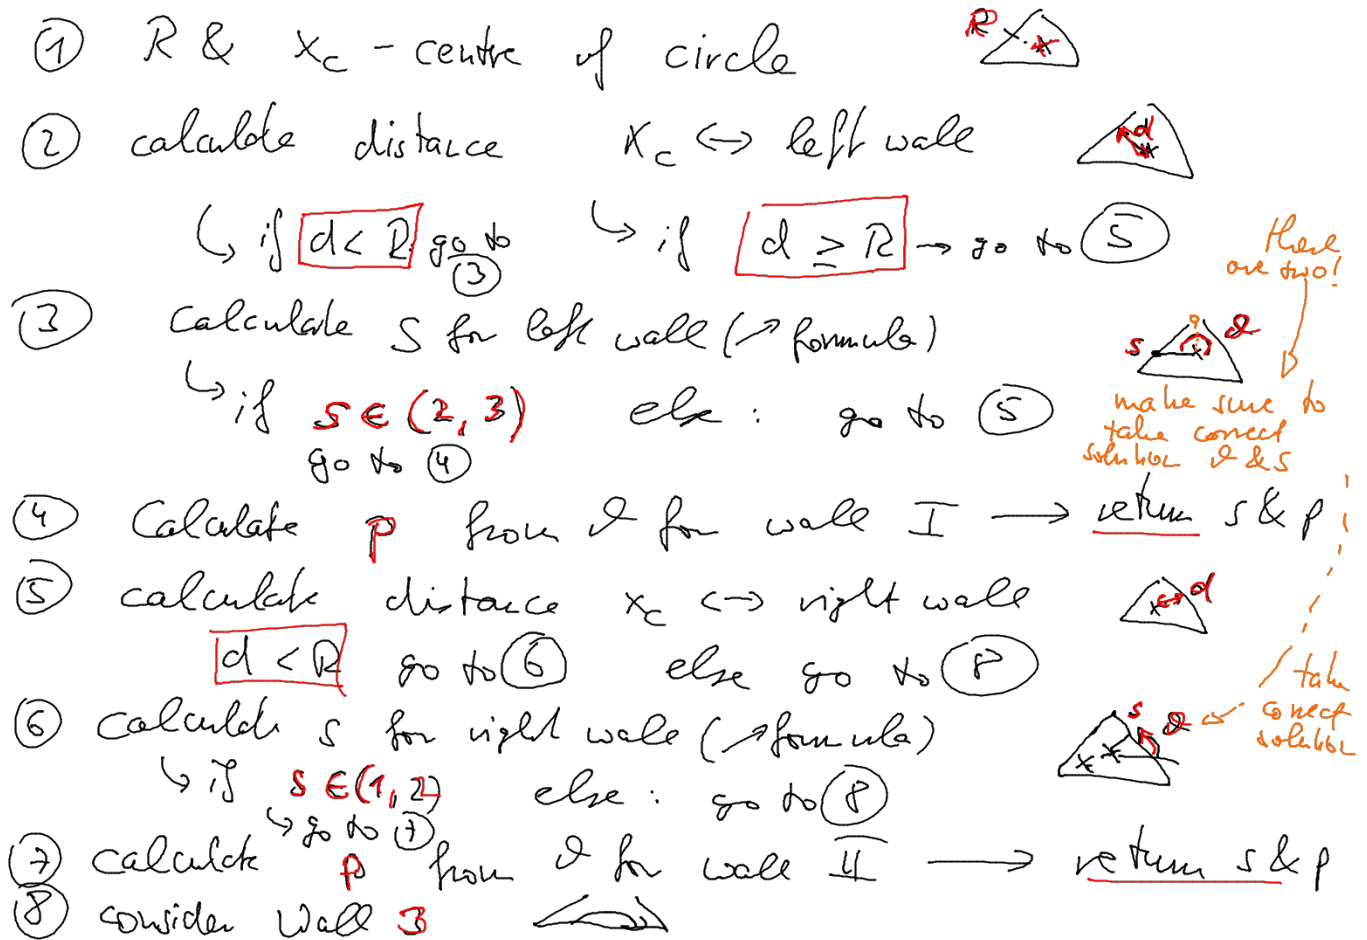 ① R & x_c - centre of circle
R
② calculate distance x_c ↔ left wall
d
↳ if d < R go to ③ ↳ if d ≥ R → go to ⑤
there are two!
③ calculate s for left wall (↗ formula)
s ϑ
↳ if s ∈ (2, 3) go to ④ else : go to ⑤
make sure to
take correct
solution ϑ & s
④ Calculate p from ϑ for wall I → return s & p
⑤ calculate distance x_c ↔ right wall
d
d < R go to ⑥ else go to ⑧
take
correct
solution
⑥ calculate s for right wall (↗ formula)
s ϑ
↳ if s ∈ (1, 2) else : go to ⑧
↳ go to ⑦
⑦ calculate p from ϑ for wall II → return s & p
⑧ consider Wall 3